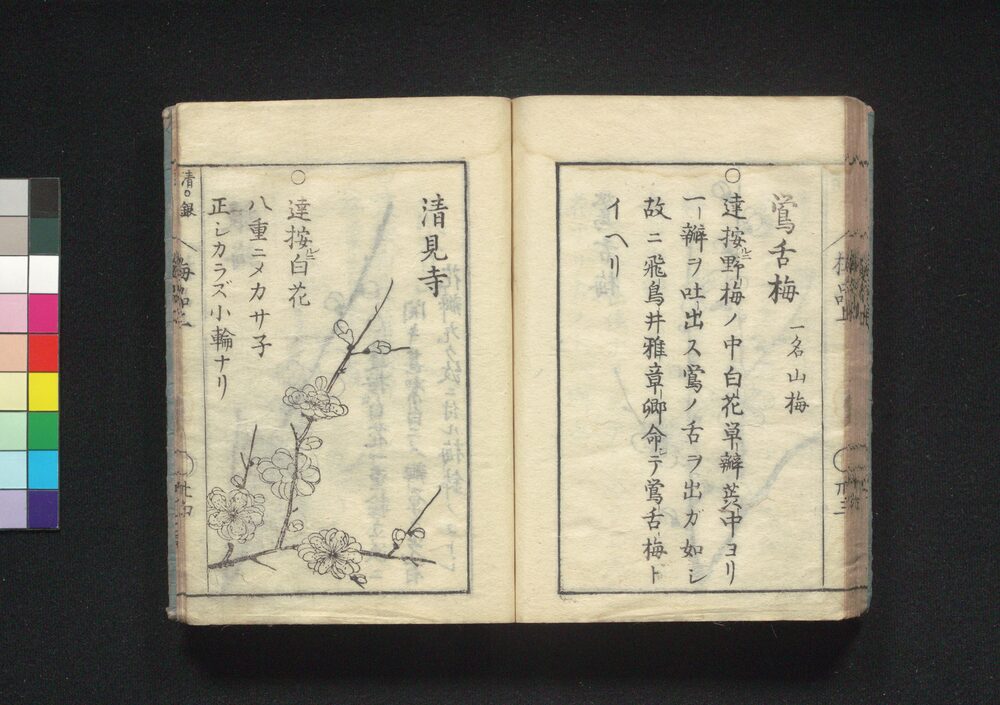 鶯舌梅 一名山梅
〇達按ルニ野梅ノ中白花単瓣蕊中ヨリ
一瓣ヲ吐出ス鶯ノ舌ヲ出ガ如シ
故ニ飛鳥井雅章卿命シテ鶯舌梅ト
イヘリ
清見寺
〇達按ルニ白花
八重ニメカサ子
正シカラズ小輪ナリ
清〇銀
梅品上